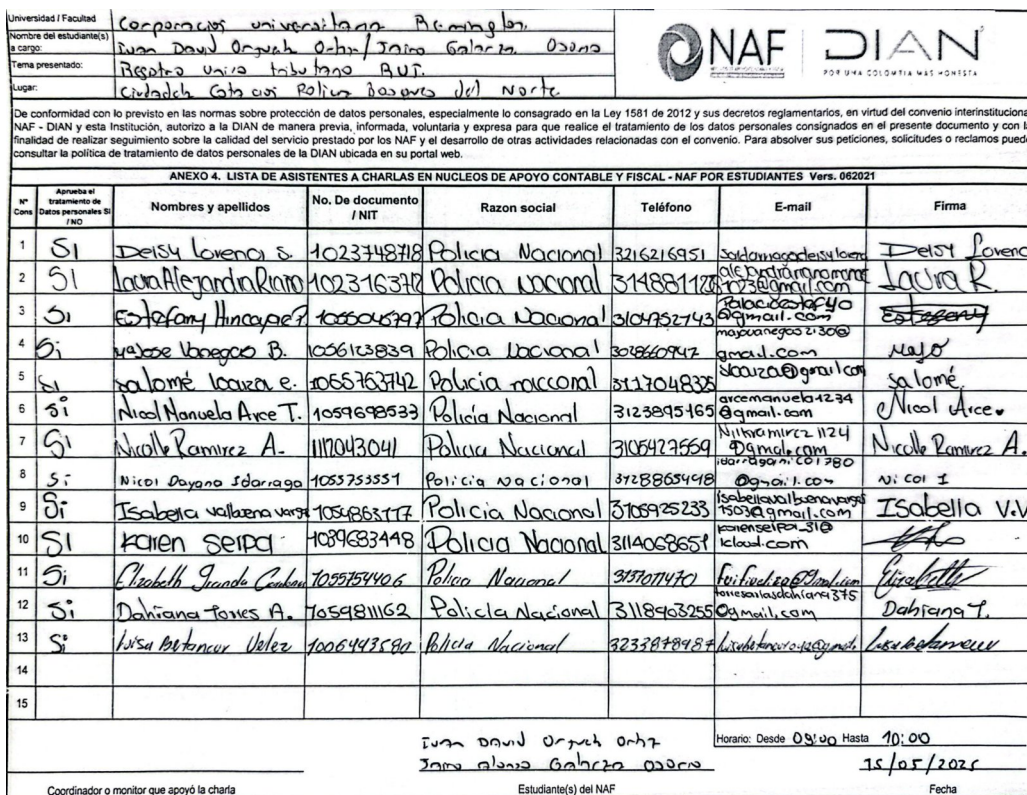 Universidad / Facultad Corporacion universitaria Remington.
Nombre del estudiante(s) a cargo: Ivan David Orguch Ortiz / Jairo Galarza Osorio
Tema presentado: Registro unico tributario RUT.
Lugar: Ciudadela Policia Bosques del Norte
NAF DIAN
POR UNA COLOMBIA MÁS HONESTA
De conformidad con lo previsto en las normas sobre protección de datos personales, especialmente lo consagrado en la Ley 1581 de 2012 y sus decretos reglamentarios, en virtud del convenio interinstitucional
NAF - DIAN y esta Institución, autorizo a la DIAN de manera previa, informada, voluntaria y expresa para que realice el tratamiento de los datos personales consignados en el presente documento y con la
finalidad de realizar seguimiento sobre la calidad del servicio prestado por los NAF y el desarrollo de otras actividades relacionadas con el convenio. Para absolver sus peticiones, solicitudes o reclamos puede
consultar la política de tratamiento de datos personales de la DIAN ubicada en su portal web.
ANEXO 4. LISTA DE ASISTENTES A CHARLAS EN NUCLEOS DE APOYO CONTABLE Y FISCAL - NAF POR ESTUDIANTES Vers. 062021
N° Cons Aprueba el tratamiento de Datos personales SI / NO Nombres y apellidos No. De documento / NIT Razon social Teléfono E-mail Firma
1 SI Deisy Lorena S. 1023748718 Policia Nacional 3216216951 Deisy Lorena
2 SI Laura Alejandra Riaño 102316372 Policia nacional Laura R.
3 Si Estefany Hincapie P 1055045797 Policia Nacional 3104752743 Palacioestefy0@gmail.com Estefany
4 Si Ma Jose Vanegas B. 1056123839 Policia Nacional 3028660947 majovanegas2130@gmail.com Majo
5 Si salomé loaiza e. 1055763742 Policia nacconal 3117048325 sloaiza@gmail.com salomé.
6 Si Nicol Manuela Arce T. 1059698533 Policía Nacional 3123895165 arcemanuela1234@gmail.com Nicol Arce.
7 Si Nicolle Ramirez A. 1112043041 Policia Nacional 3105427559 Nikramirez1124@gmal.com Nicolle Ramirez A.
8 Si Nicol Dayana Idarraga 1055753551 Policia Nacional 3128865498 idarraganico1780@gmail.com Nicol I
9 Si Isabella valbuena vargas 1054863777 Policia Nacional 3105925233 isabellavalbuenavargas1503@gmail.com Isabella V.V
10 SI Karen Serpa 1039683448 Policia Nacional 3114068651 karenserpa_31@icloud.com
11 Si Elizabeth Granda Cardona 1055754406 Policia Nacional 3137011470 Elizabeth
12 Si Dahiana Torres A. 1059811162 Policia Nacional 3118903255 torresariasdahiana375@gmail.com Dahiana T.
13 Si Luisa Betancur Velez 1006493580 Policia Nacional 3233878987 Luisa betancur
14
15
Ivan David Orguch Ortiz
Jairo Alonso Galarza Osorio
Horario: Desde 09:00 Hasta 10:00
15/05/2025
Coordinador o monitor que apoyó la charla Estudiante(s) del NAF Fecha